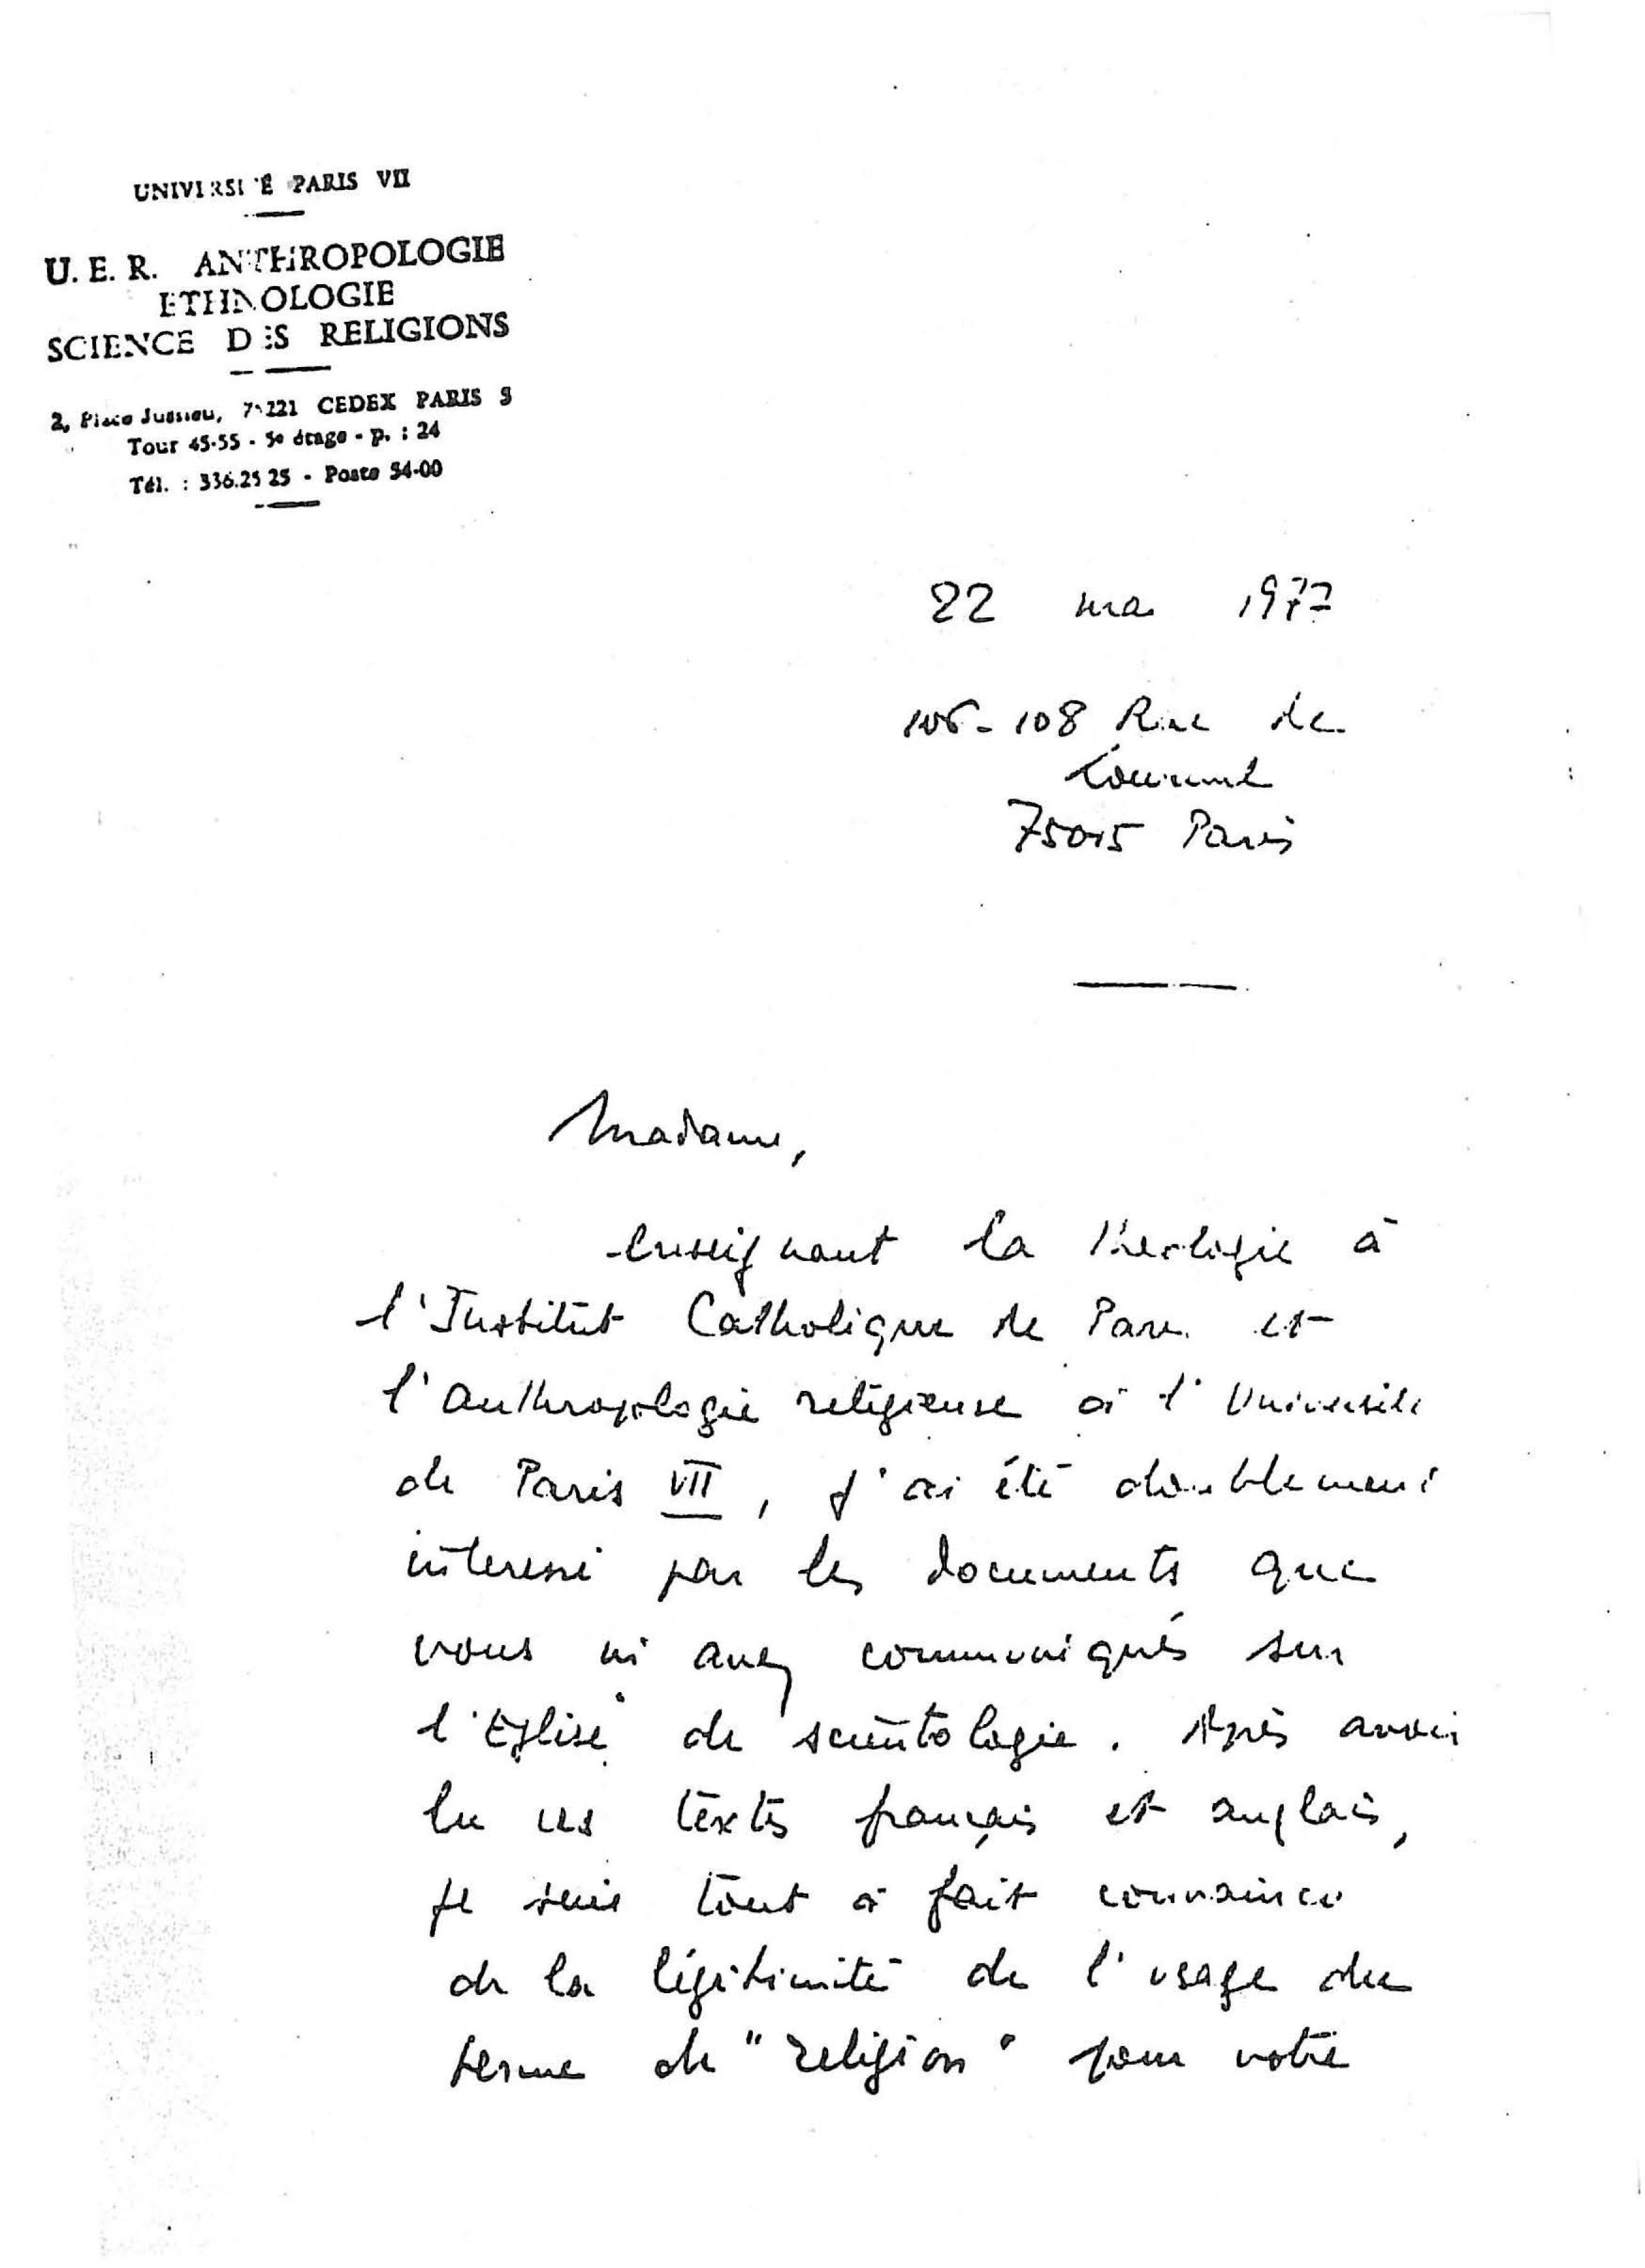 UNIVERSITÉ PARIS VII
U. E. R. ANTHROPOLOGIE
ETHNOLOGIE
SCIENCE DES RELIGIONS
2, Place Jussieu, 75221 CEDEX PARIS 5
Tour 45-55 - 5e étage - p. : 24
Tél. : 336.25 25 - Poste 54-00
22 mai 1977
106-108 Rue de
75015 Paris
Madame,
Enseignant la théologie à
l'Institut Catholique de Paris et
l'anthropologie religieuse à l'Université
de Paris VII, j'ai été doublement
intéressé par les documents que
vous m'avez communiqués sur
l'Eglise de scientologie. Après avoir
lu ces textes français et anglais,
je suis tout à fait convaincu
de la légitimité de l'usage du
terme de "religion" pour votre